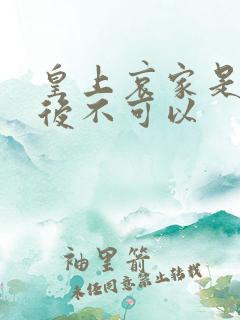 皇上哀家是太
後不可以
袖里箭
未经同意禁止转载